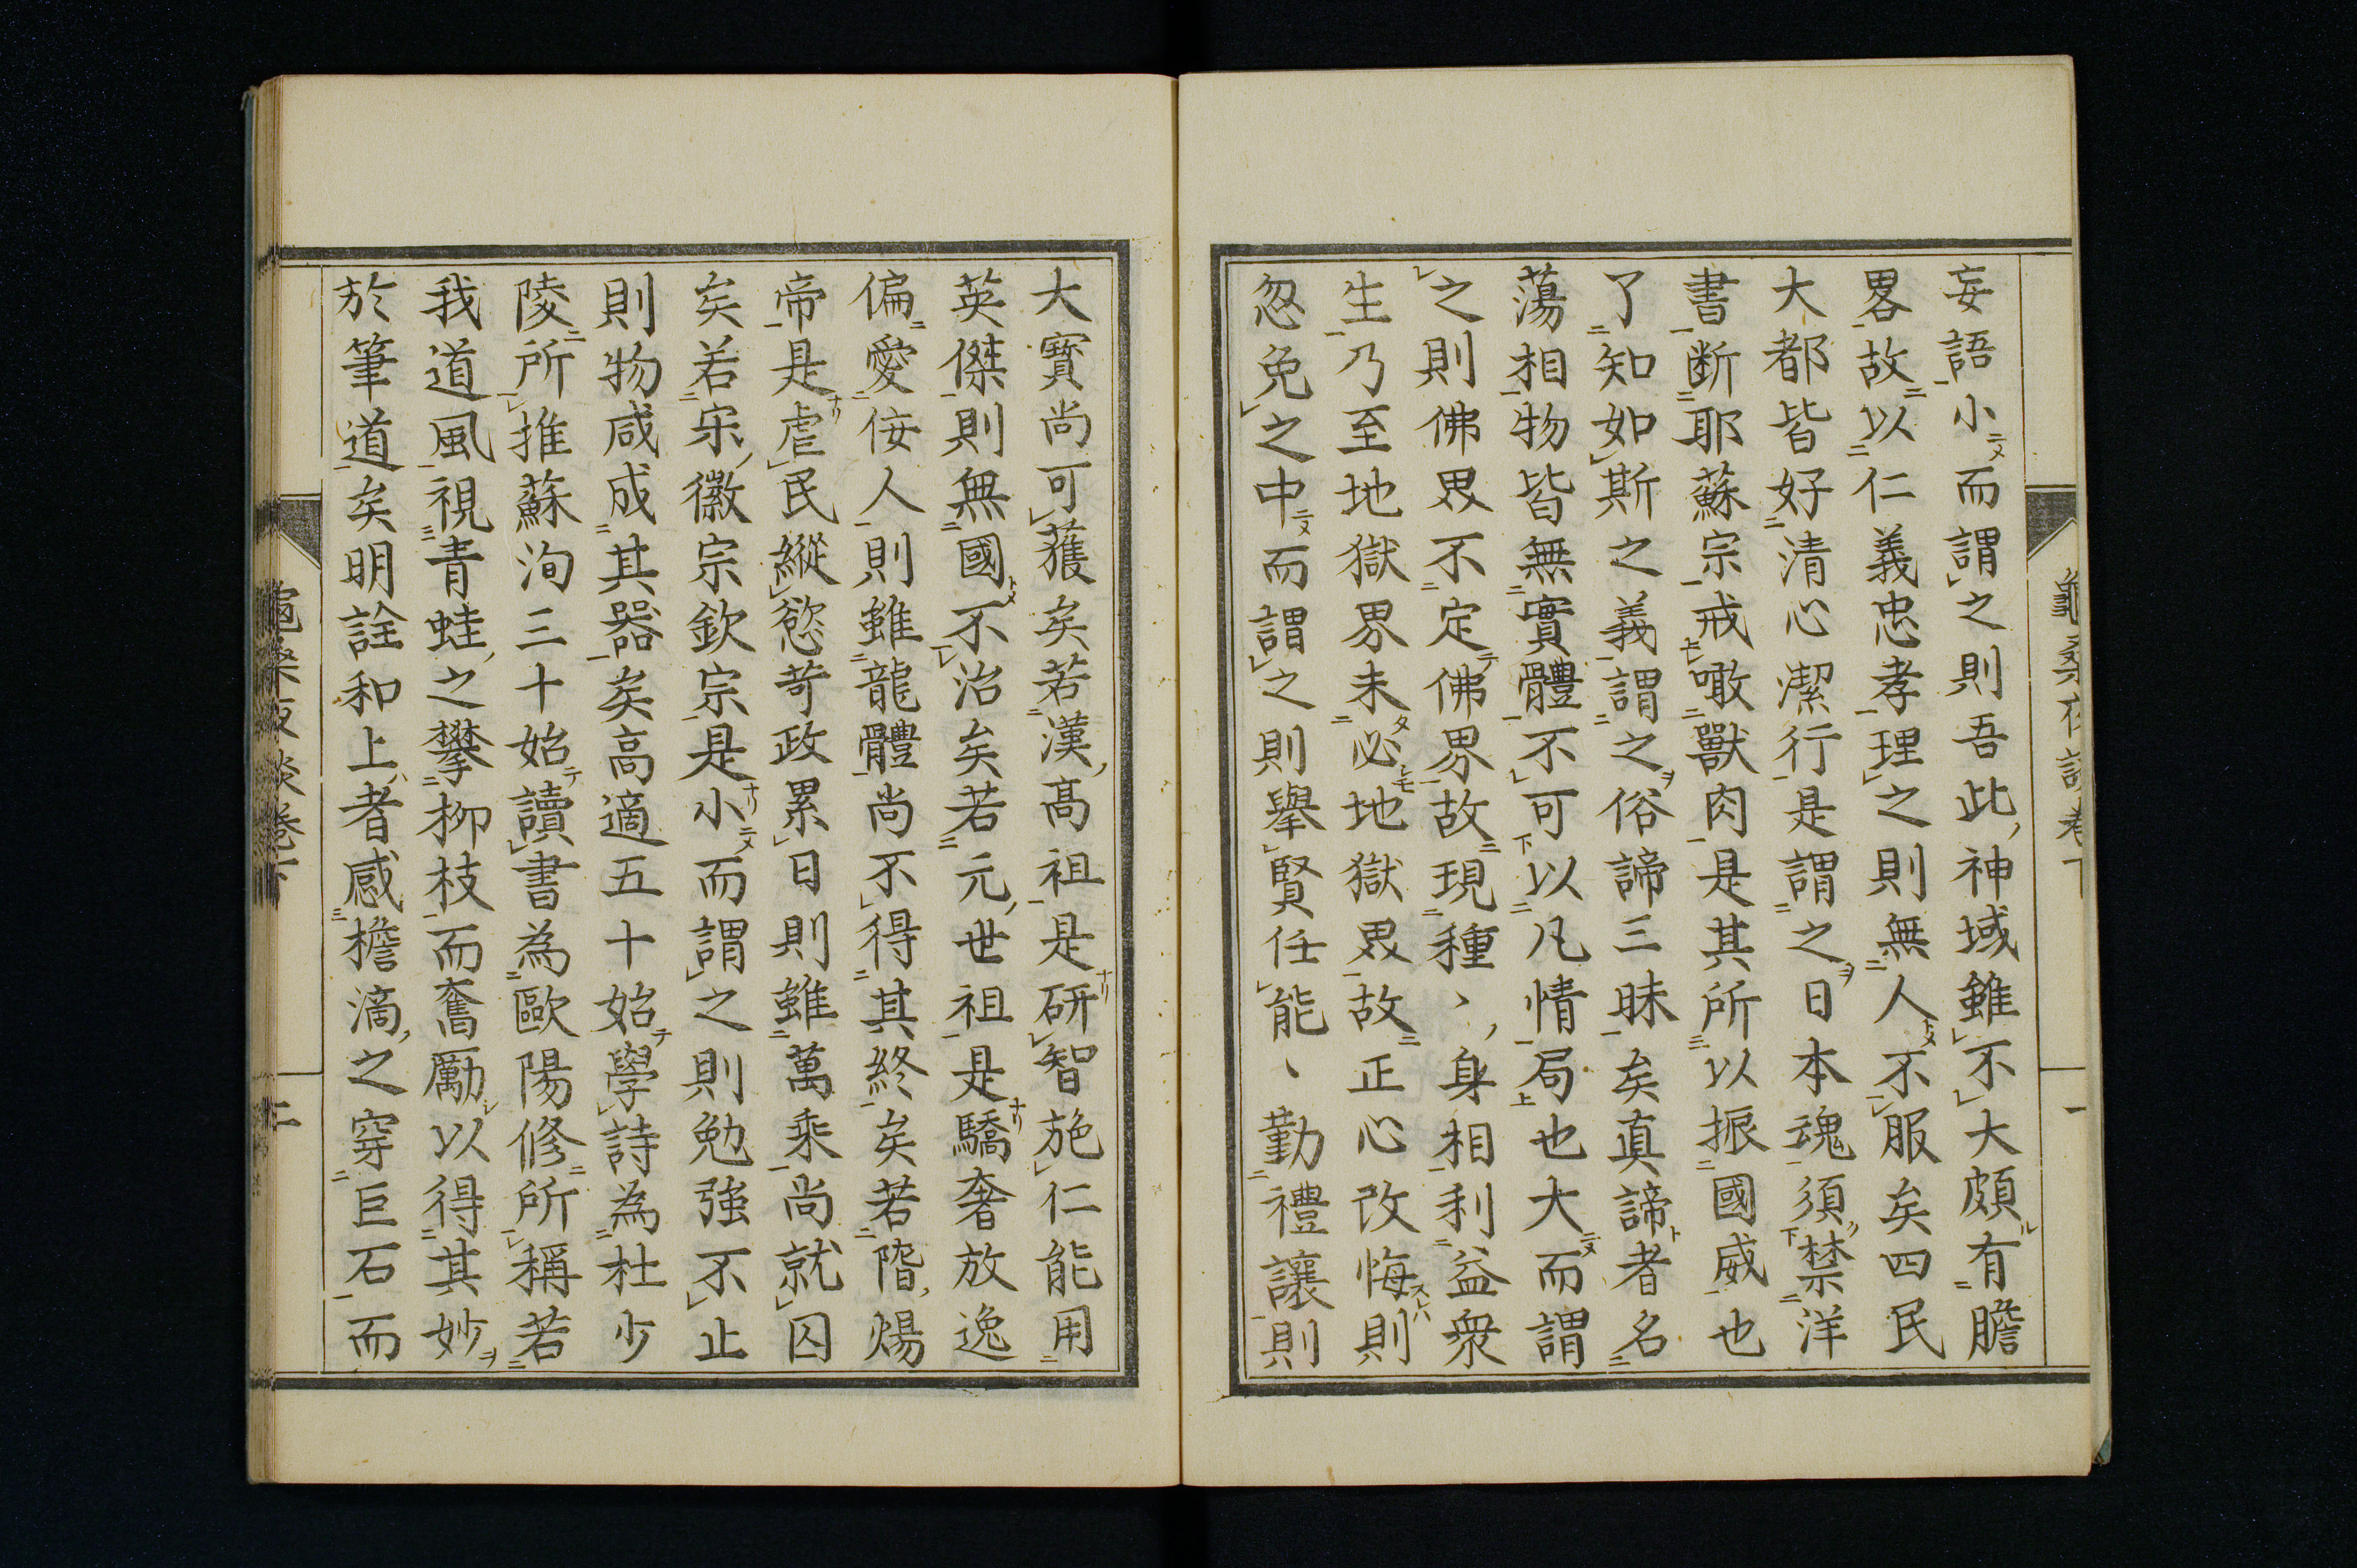 妄語小而謂之則吾此神域雖不大頗有膽
畧故以仁義忠孝理之則無人不服矣四民
大都皆好清心潔行是謂之日本魂須禁洋
書断耶蘇宗戒噉獸肉是其所以振國威也
了知如斯之義謂之俗諦三昧矣真諦者名
蕩相物皆無實體不可以凡情局也大而謂
之則佛畍不定佛界故現種〻身相利益衆
生乃至地獄界未必地獄畍故正心改悔則
忽免之中而謂之則舉賢任能〻勤禮讓則
大寳尚可獲矣若漢高祖是研智施仁能用
英傑則無國不治矣若元世祖是驕奢放逸
偏愛佞人則雖龍體尚不得其終矣若隋煬
帝是虐民縱慾苛政累日則雖萬乘尚就囚
矣若宋徽宗欽宗是小而謂之則勉強不止
則物咸成其器矣高適五十始學詩為杜少
陵所推蘇洵三十始讀書為歐陽修所稱若
我道風視青蛙之攀柳枝而奮勵以得其妙
於筆道矣明詮和上者感檐滴之穿巨石而